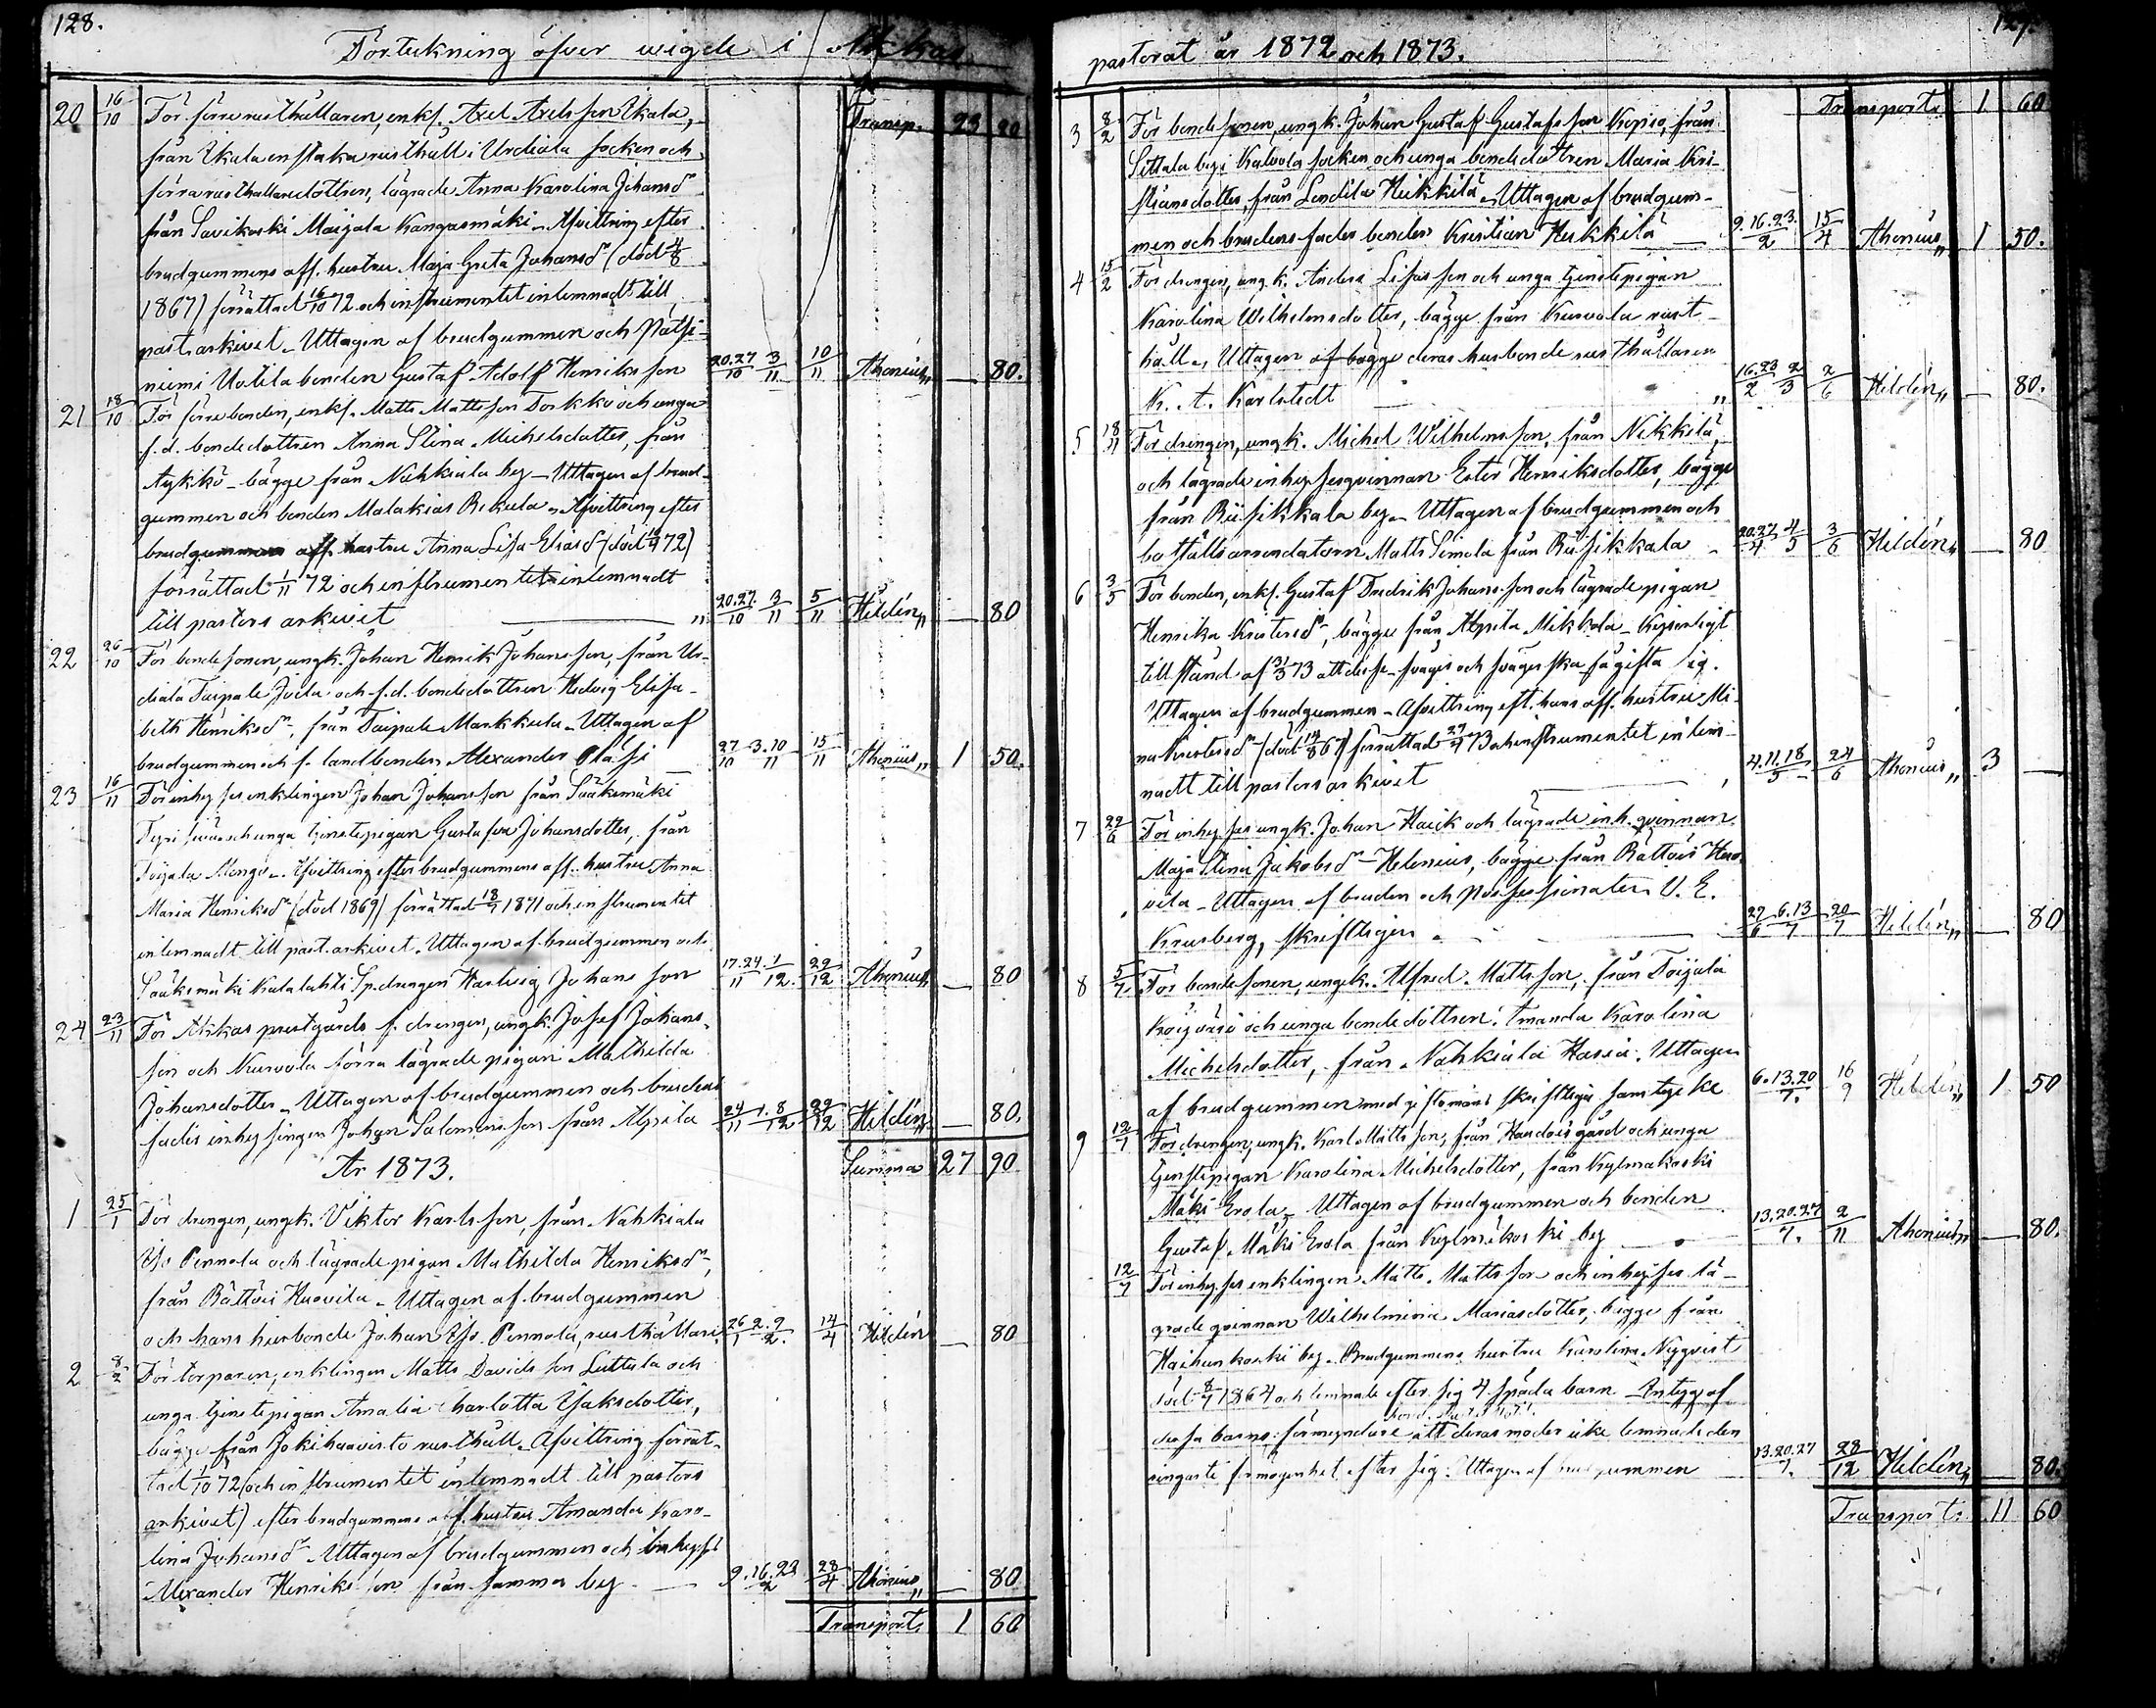 128.
Förteckning öfver wigde i Akkas
20 16/10 För förre rusthållaren, enkl. Axel Axelsson Ukala, Transp. 23 20
från Ukala enstaka rusthåll i Urdiala socken och
förra rusthållaredottren, lägrade Anna Karolina Johansdr
från Savikoski Maijala Kangasmäki. Afvittring efter
brudgummens afl. hustru Maja Greta Johansdr (död 4/8
1867) förrättad 16/10 72 och instrumentet inlemnadt till
past. arkivet. Uttagen af brudgummen och
niemi Uotila bonden Gustaf Adolf Henriksson 20.27/10 3/11 10/11 Ahonius „ — 80.
21 18/10 För förre bonden, enkl. Matts Mattsson Torkko och unga
f.d. bondedottren Anna Stina Michelsdotter, från
Äykkö - bägge från Nahkiala by - Uttagen af brud-
gummen och bonden Malakias Rekula - Afvittring efter
brudgummens afl. hustru Anna Lisa Eliasdr (död 72)
förrättad 1/11 72 och instrumentet inlemnadt
till pastors arkivet „ 20.27./10 3/11 5/11 Hildén „ — 80
22 26/10 För bondesonen, ungk. Johan Henrik Johansson, från Ur-
diala Taipale Joila och f.d. bondedottren Hedvig Elisa-
beth Henriksdr, från Taipale Markkula - Uttagen af
brudgummen och f. landbonden Alexander 27/10 3.10/11 15/11 Ahonius „ 1 50.
23 16/11 För inhyses enklingen Johan Johansson från Sääksmäki
och unga tjenstepigan Gustafva Johansdotter, från
Toijala Mongo. Afvittring efter brudgummens afl. hustru Anna
Maria Henriksdr (död 1869) förrättad 18/7 1871 och instrumentet
inlemnadt till past. arkivet. Uttagen af brudgummen och
Sääksmäki Kalalahti Sp. drengen Hartvig Johansson 17.24/11 1/12. 29/12 Ahonius „ — 80
24 23/11 För Akkas prestgårds f. drengen, ungk. Josef Johans-
son och Kurvola förra lägrade pigan Mathilda
Johansdotter - Uttagen af brudgummen och brudens
fader inhysingen Johan Salomonsson från Alpila 24/11 1.8/12 29/12 Hildén „ — 80.
År 1873. Summa 27 90
1 25/1 För drengen, ungk. Viktor Karlsson, från Nahkiala
Yso Pennola och lägrade pigan Mathilda Henriksdr,
från Rättöis Huovila - Uttagen af brudgummen
och hans husbonde Johan Yso Pennola, rusthållare. 26/1 2.9/2. 14/4 Hildén — 80
2 8/2 För torparen, enklingen Matts Davidsson Luttula och
unga tjenstepigan Amalia Charlotta Isaksdotter,
bägge från Jokihaavisto rusthåll. Afvittring förrät-
tad 1/10 72 (och instrumentet inlemnadt till pastors
arkivet) efter brudgummens afl. hustru Amanda Karo-
lina Johansdr. Uttagen af brudgummen och inhyses
Alexander Henriksson från samma by 9.16.23/2 28/4 Ahonius „ — 80
Transport. 1 60
pastorat år 1872 och 1873.
Transport. 1 60
3 8/2 För bondesonen, ungk. Johan Gustaf Gustafsson från
Sittala by i Kalvola socken och unga bondedottren Maria Kri-
stiansdotter, från Heikkilä. Uttagen af brudgum-
men och brudens fader bonden Kristian Heikkilä 9.16.23./2 15/4 Ahonius „ 1 50.
4 15/2 För drengen, ungk. Anders och unga tjenstepigan
Karolina Wilhelmsdotter, bägge från Kurvola rust-
håll. Uttagen af bägge deras husbonde rusthållaren
K. A. Karlstedt „ 16.23/2 2/3 2/6 Hildén „ — 80.
5 18/4 För drengen, ungk. Michel Wilhelmsson, från Nikkilä,
och lägrade inhysesqvinnan Ester Henriksdotter, bägge
från Riisikkala by. Uttagen af brudgummen och
boställsarrendatorn Matts Simola från Riisikkala 20.27/4 4/5 3/6 Hildén „ — 80
6 3/5 För bonden, enkl. Gustaf Fredrik Johansson och lägrade pigan
Henrika Kristersdr, bägge från Alpila Mikkola - Kejserligt
tillstånd af 31/3 73 att desse svåger och svägerska få gifta sig.
Uttagen af brudgummen - Afvittring eft. hans afl. hustru Mi-
na Kristersdr (död 14/8 67) förrättad 29/4 73 och instrumentet inlem-
nadt till pastors arkivet 4.11.18/5 24/6 Ahonius „ 3 —
7 22/6 För inhyses ungk. Johan Haick och lägrade inh. qvinnan
Maja Stina Jakobsdr Helenius, bägge från Rättöis Huo-
vila - Uttagen af bruden och Possessionaten V. E.
Krusberg, skriftligen 29/6 6.13/7 20/7 Hildén „ — 80
8 5/7 För bondesonen, ungk. Alfred Mattsson, från Toijala
och unga bondedottren Amanda Karolina
Michelsdotter, från Nahkiala Haria. Uttagen
af brudgummen med giftomans skriftliga samtycke 6.13.20/7. 16/9 Hildén „ 1 50
9 12/7 För drengen, ungk. Karl Mattsson, från gård och unga
tjenstepigan Karolina Michelsdotter, från Kylmäkoski
Mäki Erola - Uttagen af brudgummen och bonden
Gustaf Mäki Erola från Kylmäkoski by 13.20.27/7. 2/11 Ahonius „ — 80.
12/7 För inhyses enklingen Matts Mattsson och inhyses lä-
grade qvinnan Wilhelmina Mariasdotter, bägge från
Haihunkoski by. Brudgummens hustru Karolina Nyqvist
död 8/7 1864 och lemnade efter sig 4 späda barn - Intyg af
dessa barns förmyndare att deras moder icke lemnade den
ringaste förmögenhet efter sig. Uttagen af brudgummen 13.20.27/7. 28/12 Hildén „ — 80.
Transport: 11 60